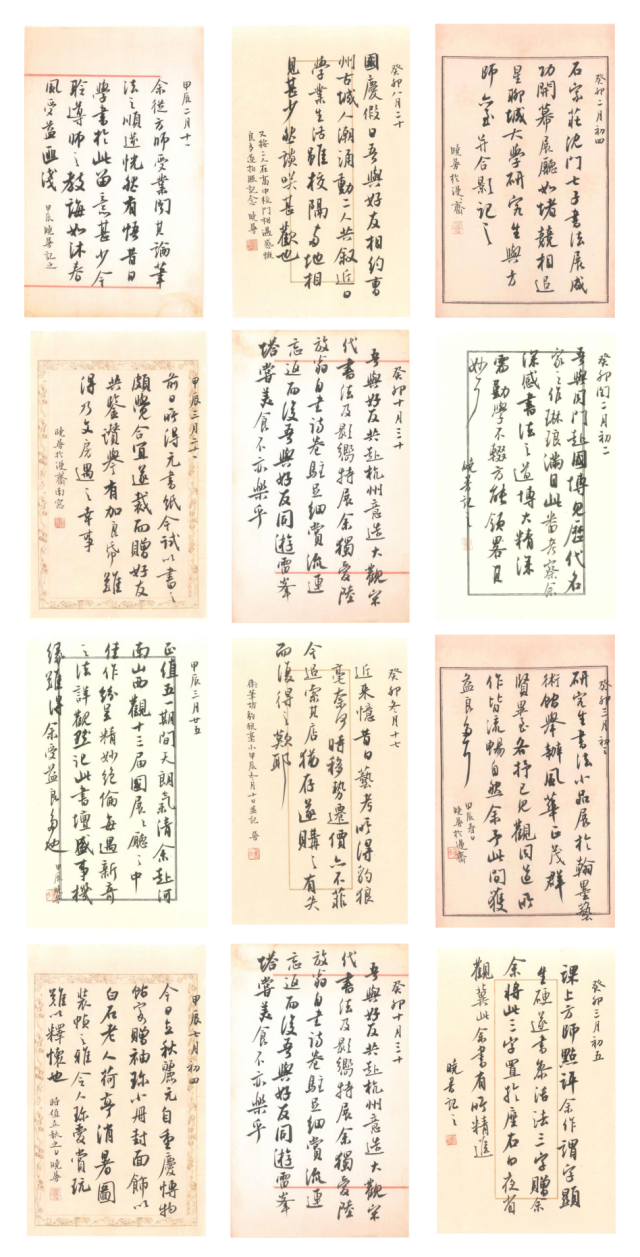 癸卯二月初四
石家莊沈門七子書法展成
功開幕展廳如堵競相追
星聊城大學研究生與方
師并合影記之
曉蕓於漫齋
癸卯閏二月初二
吾與同門赴國博見歷代名
家之作琳琅滿目此番考察余
深感書法之道博大精深
需勤學不輟方能領略其
妙耳
曉蕓記之
癸卯三月初
研究生書法小品展於翰墨藝
術館舉辦風華正茂群
賢畢至各抒己見觀同道所
作皆流暢自然余于此間獲
益良多耳
甲辰春日
曉蕓於漫齋
癸卯三月初五
課上方師點評余作謂字顯
生硬遂書條活法三字贈余
余將此三字置於座右日夜省
觀冀此余書有所精進
曉蕓記之
癸卯八月二十
國慶假日吾與好友相約曹
州古城人潮涌動二人共敘近日
學業生活雖校隔兩地相
見甚少然談笑甚歡也
又按二人在高中校門相遇感慨
良多遂拍照記念 曉蕓
癸卯十月三十
吾與好友共赴杭州意造大觀宋
代書法及影響特展余獨愛陸
放翁自書詩卷駐足細賞流連
忘返而後吾與好友同遊雷峯
塔嘗美食不亦樂乎
癸卯冬月十七
近來憶昔日藝考所得豹狼
毫奈何時移勢遷價亦不菲
今追索其店猶存遂購之有失
而復得之歎耶
癸卯十月三十
吾與好友共赴杭州意造大觀宋
代書法及影響特展余獨愛陸
放翁自書詩卷駐足細賞流連
忘返而後吾與好友同遊雷峯
塔嘗美食不亦樂乎
甲辰二月十一
余從方師受業聞其論筆
法之順逆恍然有悟昔日
學書於此留意甚少今
聆導師之教誨如沐春
風受益匪淺 甲辰曉蕓記之
甲辰三月二十一
前日所得元書紙今試以書之
頗覺合宜遂裁而贈好友
共鑒讚譽有加良帋難
得乃文房遇之幸事
曉蕓於漫齋南窓
甲辰三月廿五
正值五一期間天朗氣清余赴河
南山西觀十三屆國展之廳之中
佳作紛呈精妙絕倫每遇新奇
之法詳觀記此書壇盛事機
緣難得余受益良多也 甲辰曉蕓
甲辰七月初四
今日立秋麗元自重慶博物
館寄贈袖珍小冊封面飾以
白石老人荷亭消暑圖
裝幀之雅令人珍愛賞玩
難以釋懷也 時值立秋之日曉蕓